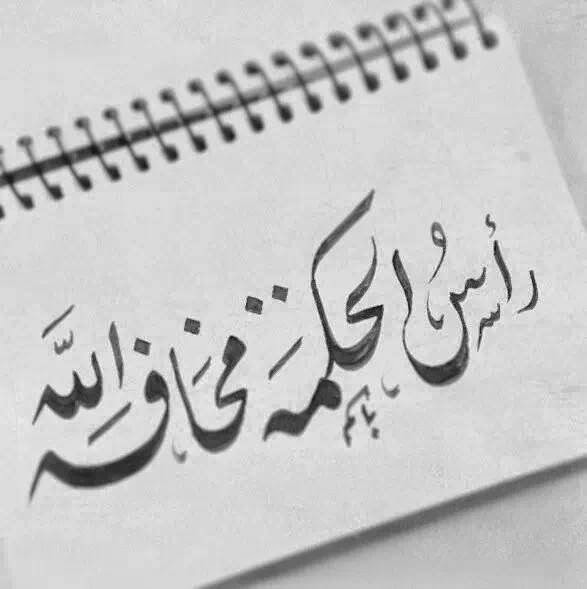 رأسُ الحكمة مخافة اللَّه